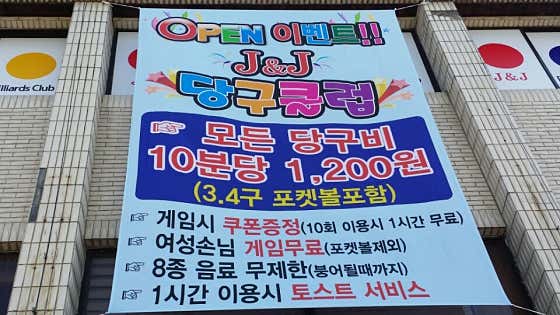 OPEN 이벤트!!
J&J
당구클럽
☞ 모든 당구비
10분당 1,200원
(3.4구 포켓볼포함)
☞ 게임시 쿠폰증정(10회 이용시 1시간 무료)
☞ 여성손님 게임무료(포켓볼제외)
☞ 8종 음료 무제한(붕어될때까지)
☞ 1시간 이용시 토스트 서비스
illiards Club
J&J